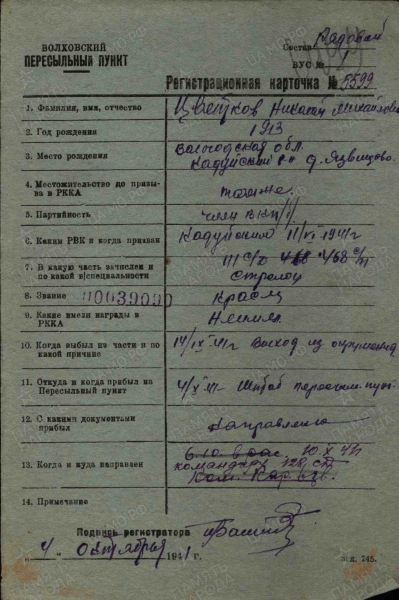 ВОЛХОВСКИЙ
ПЕРЕСЫЛЬНЫЙ ПУНКТ
Состав Рядовой
ВУС № 1
Регистрационная карточка № 5599
1. Фамилия, имя, отчество Цветков Николай Михайлович
2. Год рождения 1913
3. Место рождения Вологодская обл.
Кадуйский р-н д. Язвицево
4. Местожительство до призыва в РККА также.
5. Партийность член ВКП/б/
6. Каким РВК и когда призван Кадуйским 11/VI 1941г
7. В какую часть зачислен и по какой в/специальности 111 с/д 468 с/п
стрелок
8. Звание 00039090 красн
9. Какие имели награды в РККА Не имел
10. Когда выбыл из части и по какой причине 14/IX 41г Выход из окружения
11. Откуда и когда прибыл на Пересыльный пункт 4/X 41г Штаб пересыльн. пункт
12. С какими документами прибыл Направление
13. Когда и куда направлен 10.X 41
командах 128 сд
14. Примечание
Подпись регистратора
"4" Октября 1941 г.
зак. 745.